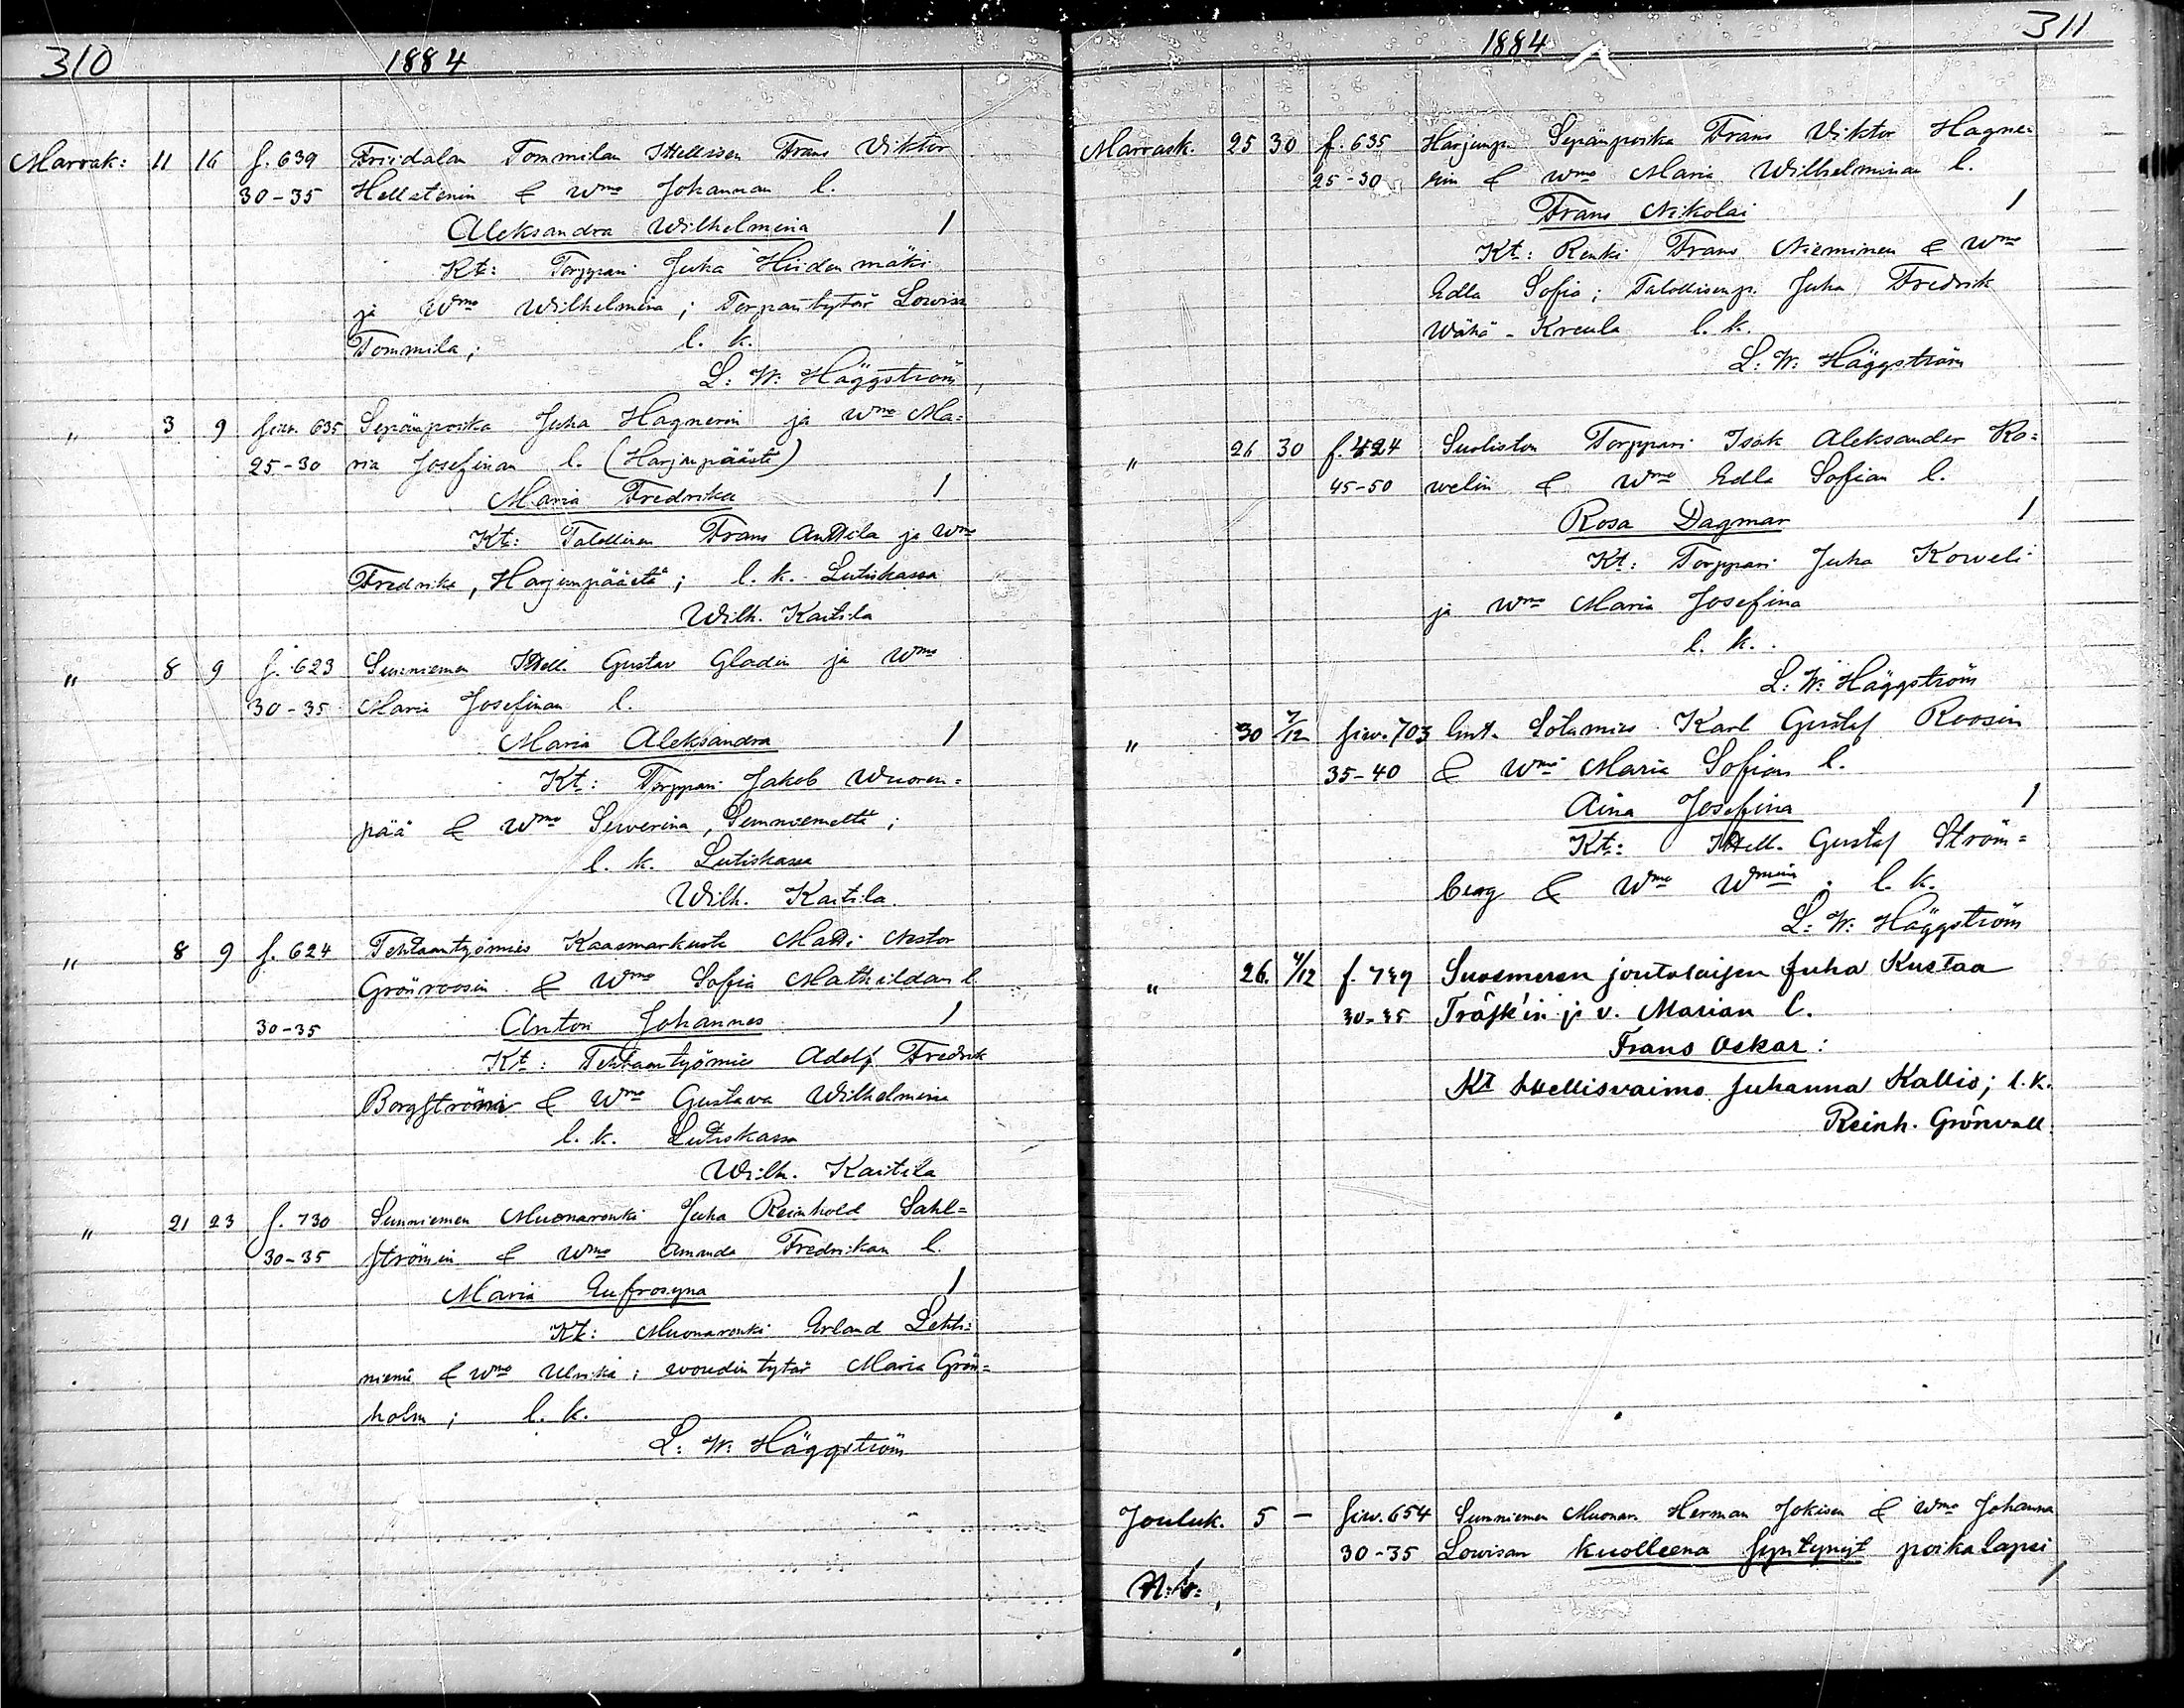 310 1884
Marrak: 11 16 f. 639 Friidalan Tommilan Ittellisen Frans Viktor
30-35 Hellstenin & Wmo Johannan l.
Aleksandra Wilhelmina 1
Kt: Torppari Juha Hiidenmäki
ja Wmo Wilhelmina; Torpantytär Lowisa
Tommila; l. k.
L: W: Häggström
" 3 9 siw. 635 Sepänpoika Juha Hagnerin ja Wmo Ma=
25-30 ria Josefinan l. (Harjunpäästä)
Maria Fredrika 1
Kt: Talollinen Frans Anttila ja Wmo
Fredrika, Harjunpäästä; l. k. Lutiskassa
Wilh. Kaitila
" 8 9 f. 623 Sunniemen Ittell. Gustav Gladin ja Wmo
30-35 Maria Josefinan l.
Maria Aleksandra 1
Kt: Torppari Jakob Wuoren=
pää & Wmo Sewerina, Sunniemeltä;
l. k. Lutiskassa
Wilh. Kaitila.
" 8 9 f. 624 Tehtaantyömies Kaasmarkusta Matti Nestor
Grönroosin & Wmo Sofia Mathildan l.
30-35 Anton Johannes 1
Kt: Tehtaantyömies Adolf Fredrik
Borgström & Wmo Gustava Wilhelmina
l. k. Lutiskassa
Wilh. Kaitila
" 21 23 f. 730 Sunniemen Muonarenki Juha Reinhold Sahl=
30-35 strömin & Wmo Amanda Fredrikan l.
Maria Eufrosyna 1
Kt: Muonarenki Erland Lehti=
niemi & Wmo Ulrika; woudin tytär Maria Grön=
holm; l. k.
L: W: Häggström
1884 311
Marrask. 25 30 f. 635 Harjunp. Sepänpoika Frans Viktor Hagne=
25-30 rin & Wmo Maria Wilhelminan l.
Frans Nikolai 1
Kt: Renki Frans Nieminen & Wmo
Edla Sofia; Talollisenp. Juha Fredrik
Wähä-Kreula l. k.
L: W: Häggström
" 26 30 f. 424 Suoliston Torppari Isak Aleksander Ko=
45-50 welin & Wmo Edla Sofian l.
Rosa Dagmar 1
Kt: Torppari Juha Koweli
ja Wmo Maria Josefina
l. k.
L: W: Häggström
" 30 7/12 siw. 703 Ent. Sotamies Karl Gustaf Roosin
35-40 & Wmo Maria Sofian l.
Aina Josefina 1
Kt: Ittell. Gustaf Ström=
berg & Wmo Wmina. l. k.
L: W: Häggström
" 26. 4/12 f. 749 Suosmeren joutolaisen Juha Kustaa
30-35 Träsk'in ja v. Marian l.
Frans Oskar:
Kt Ittellisvaimo Juhanna Kallio; l. k.
Reinh. Grönvall.
Jouluk. 5 - siw. 654 Sunniemen Muonar. Herman Jokisen & Wmo Johanna
30-35 Lowisan kuolleena syntynyt poikalapsi
1